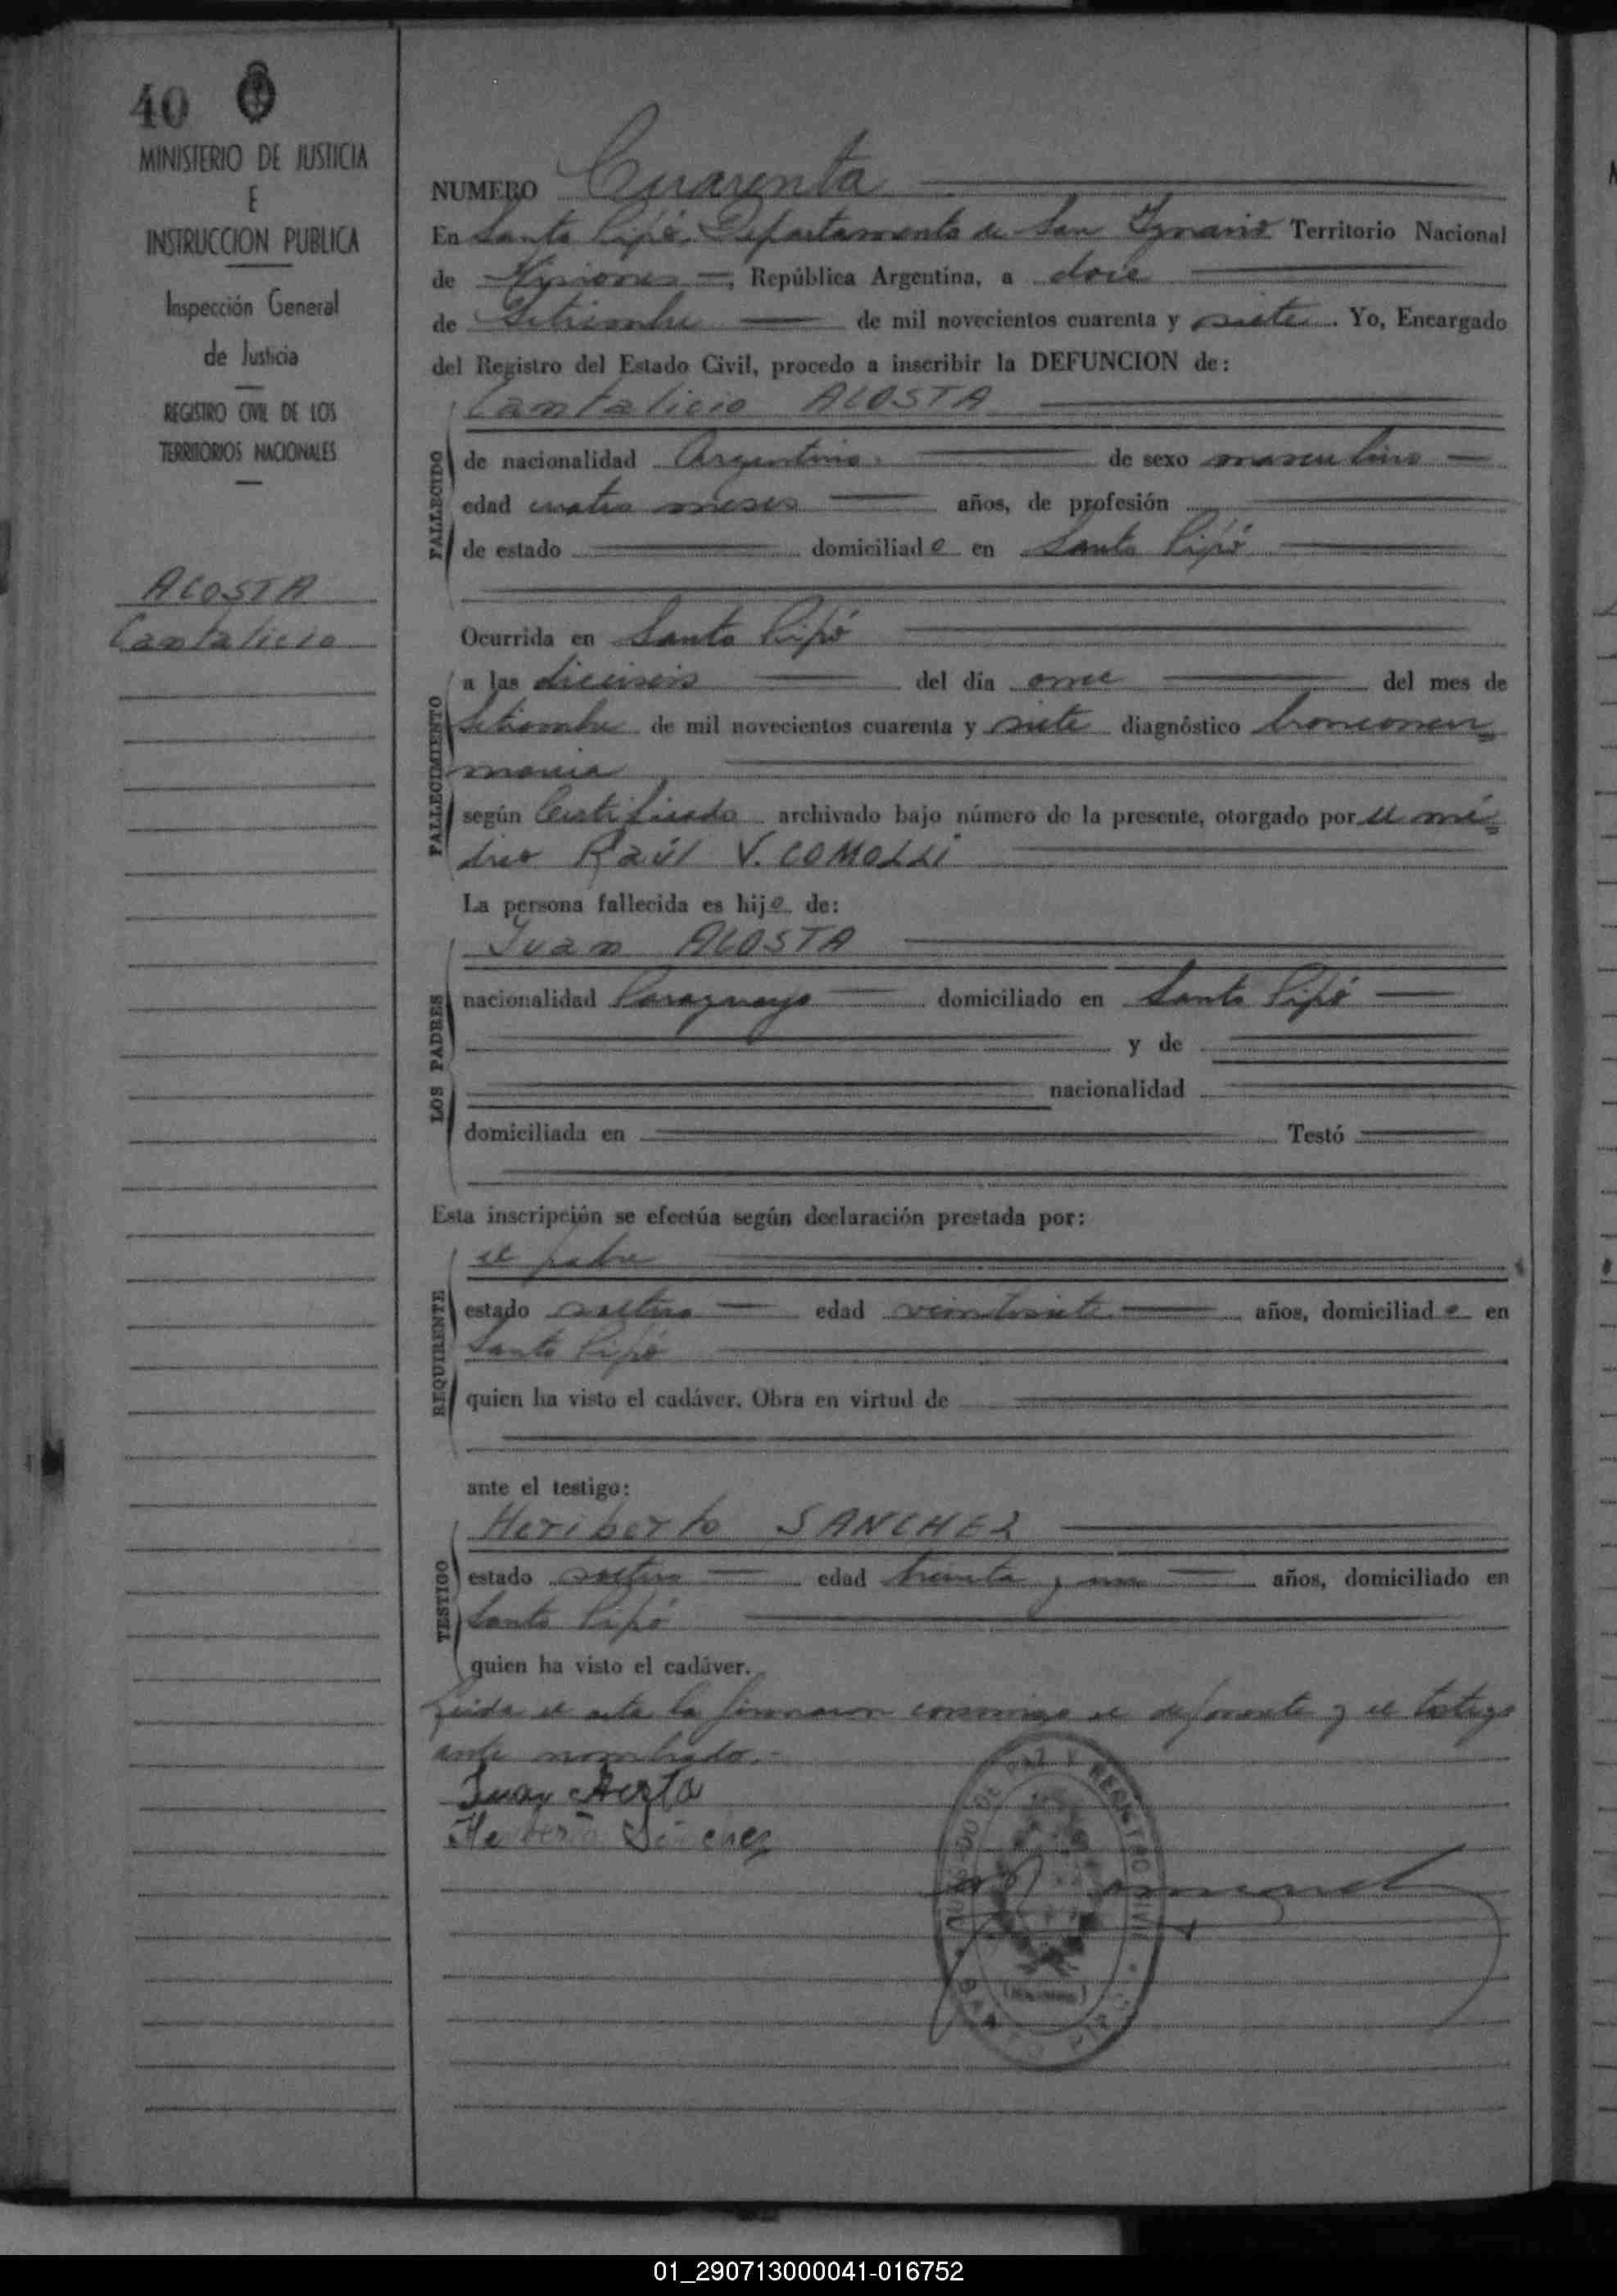 40
MINISTERIO DE JUSTICIA
E
INSTRUCCION PUBLICA
Inspección General
de Justicia
REGISTRO CIVIL DE LOS
TERRITORIOS NACIONALES
ACOSTA
Cantalicio
NUMERO Cuarenta
En Santo Pipó, Departamento de San Ignacio Territorio Nacional
de Misiones, República Argentina, a doce
de Setiembre de mil novecientos cuarenta y siete. Yo, Encargado
del Registro del Estado Civil, procedo a inscribir la DEFUNCION de:
Cantalicio ACOSTA
FALLECIDO
de nacionalidad Argentina de sexo masculino
edad cuatro meses años, de profesión
de estado domiciliado en Santo Pipó
Ocurrida en Santo Pipó
FALLECIMIENTO
a las dieciseis del día once del mes de
Setiembre de mil novecientos cuarenta y siete diagnóstico bronconeu=
monia
según Certificado archivado bajo número de la presente, otorgado por el mé=
dico Raúl V. COMOLLI
La persona fallecida es hijo de:
LOS PADRES
Juan ACOSTA
nacionalidad Paraguayo domiciliado en Santo Pipó
y de
nacionalidad
domiciliada en Testó
Esta inscripción se efectúa según declaración prestada por:
REQUIRENTE
el padre
estado soltero edad veintisiete años, domiciliado en
Santo Pipó
quien ha visto el cadáver. Obra en virtud de
ante el testigo:
TESTIGO
Heriberto SANCHEZ
estado soltero edad treinta y un años, domiciliado en
Santo Pipó
quien ha visto el cadáver.
Leida el acta la firmaron conmigo el deponente y el testigo
ante nombrado.-
Juan Acosta
Heriberto Sanchez
JUZGADO DE PAZ Y REGISTRO CIVIL
SANTO PIPO
(Misiones)
01_290713000041-016752